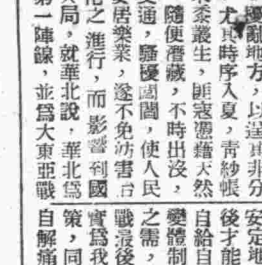 擾亂地方，以逞其非分
尤其時序入夏，青紗帳
黍叢生，匪寇憑藉天然
隨便潛藏，不時出沒，
交通，騷擾閭閻，使人民
居樂業，遂不免妨害
之進行，而影響到國
大局，就華北說，華北爲
第一陣線，並爲大東亞戰
安定地
後才能
自給自
變體制
之需，
戰最後
實爲我
策，同
自解痛